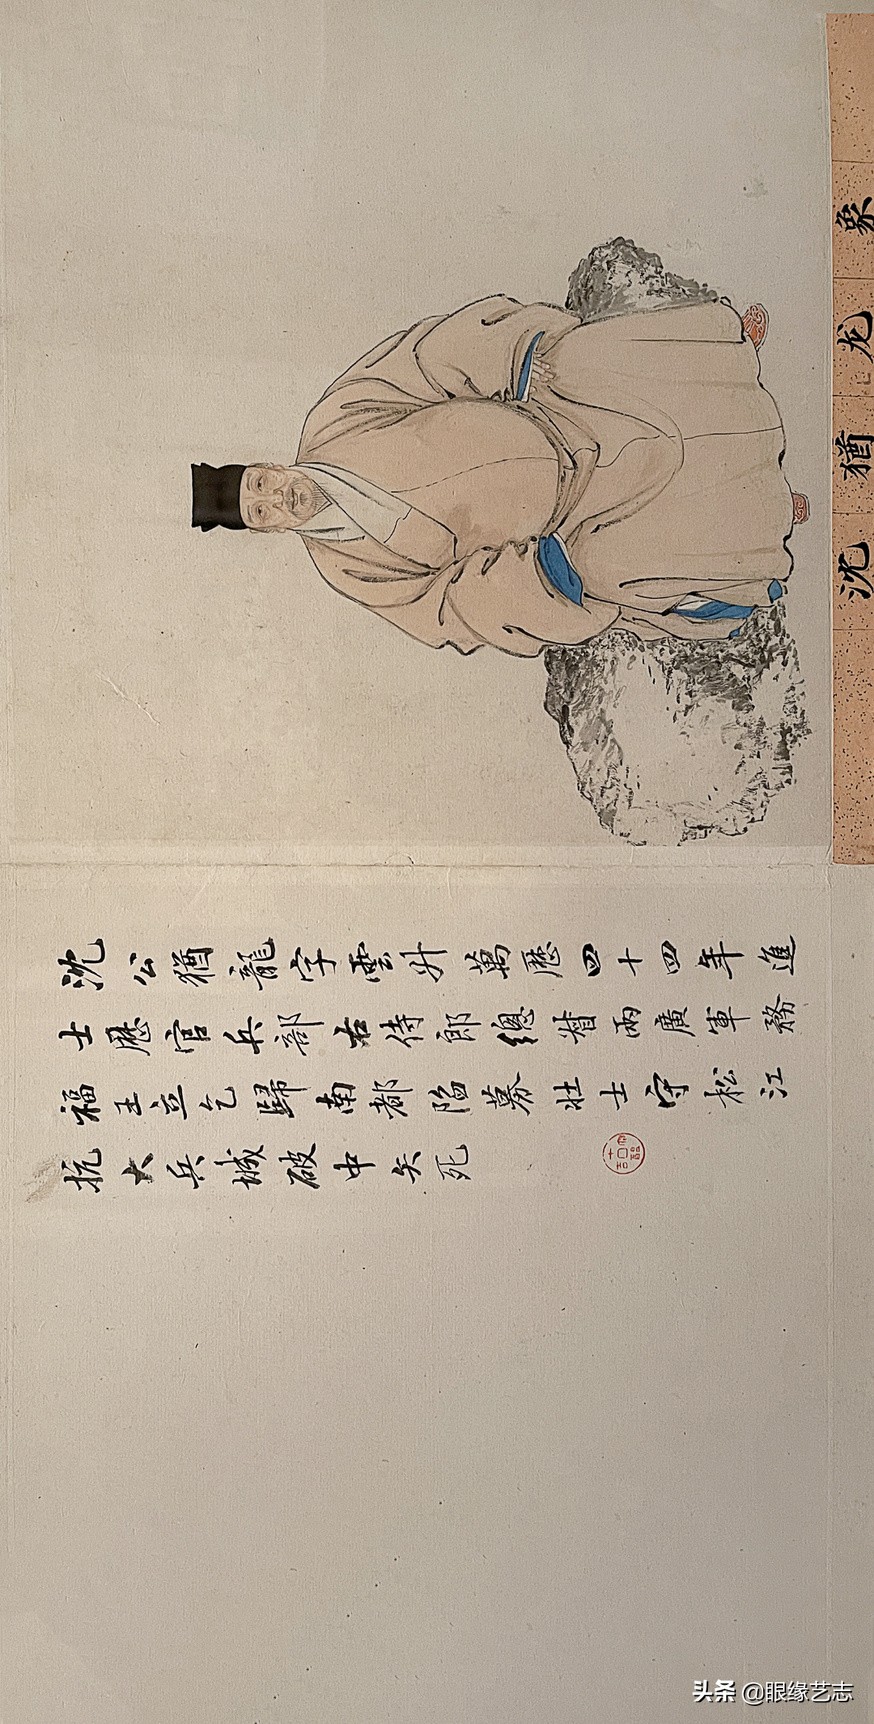 沈猶龙象
沈公猶龍字雲升萬歷四十四年進
士歷官兵部右侍郎總督兩廣軍務
福王立乞歸南都陷募壯士守松江
抗大兵城破中矢死
头条 @眼缘艺志